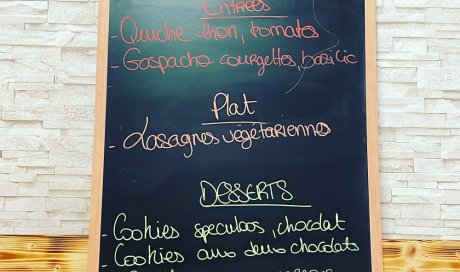 Entrées
- Quiche thon, tomates
- Gaspacho courgettes, basilic
Plat
- Lasagnes végétariennes
DESSERTS
- Cookies speculoos, chocolat
- Cookies aux deux chocolats